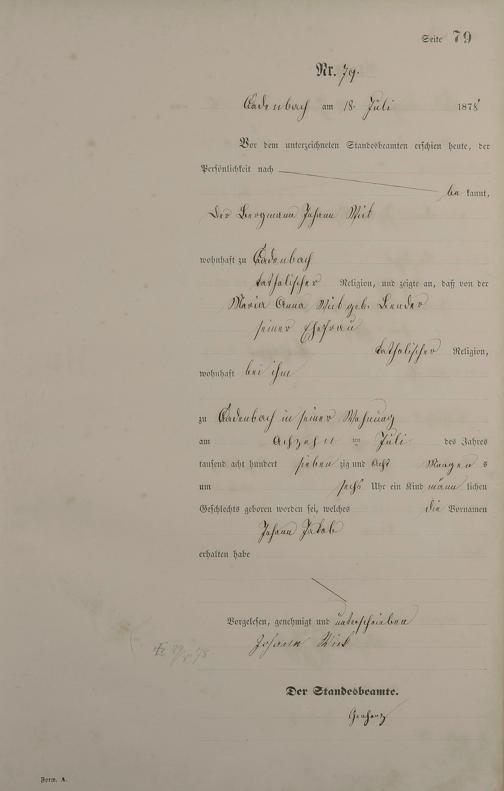 Seite 79
Nr. 79.
Cadenbach am 18. Juli 1878
Vor dem unterzeichneten Standesbeamten erschien heute, der
Persönlichkeit nach
be kannt,
der Bergmann Johann
wohnhaft zu Cadenbach
katholischer Religion, und zeigte an, daß von der
Maria Anna geb. Bender
seiner Ehefrau
katholischer Religion,
wohnhaft bei ihm
zu Cadenbach in seiner Wohnung
am achzehn ten Juli des Jahres
tausend acht hundert sieben zig und acht Morgen s
um sechs Uhr ein Kind männ lichen
Geschlechts geboren worden sei, welches die Vornamen
Johann Jakob
erhalten habe
Vorgelesen, genehmigt und unterschrieben
Johann
Der Standesbeamte.
Form. A.